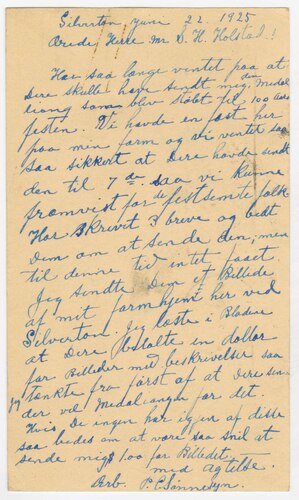 Silverton, June 22. 1925
Ærede Herre Mr D. H. Holstad!
Har saa længe ventet paa at
Dere skulle have sendt mig den Medal
som blev støbt til 100 aars
festen. Vi havde en fest her
paa min farm og vi ventet saa
saa sikkert at Dere havde sendt
den til 7 de saa vi kunne
fremvist for de festsemte folk
Har Skrevit 3 breve og bedt
Dem om at sende den, men
til denne tid intet faaet.
Jeg sendte Dem et Billede
af mit farmhjem her ved
Silverton. Jeg læste i Bladene
at Dere betalte en dollar
for Billeder med beskrivelser saa
jeg tænkte fra først af at Dere sen-
der vel Medaliangen for det.
Hvis De ingen har igjen af disse
saa bedes om at være saa snil at
sende mig $1.00 for Billedet.
med Agtelse.
Ærb. P. C. Sonnesyn.